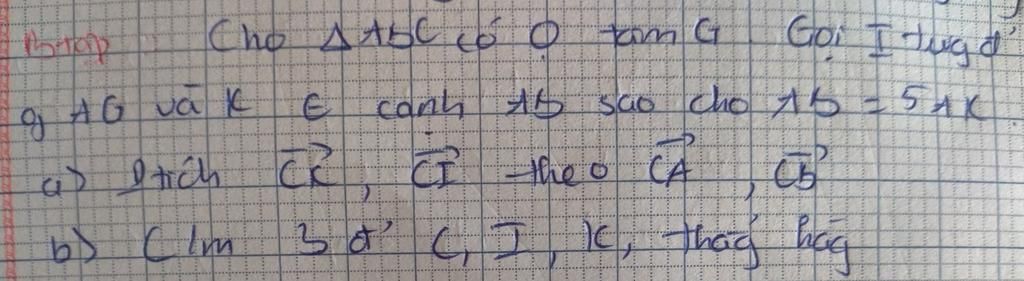 B.tập Cho Δ ABC có O tâm G Gọi I trug đ'
g AG và K ∈ cạnh AB sao cho AB = 5AK
a) Ptích CK, CI theo CA, CB
b) C/m 3 đ' C, I, K, thẳg hàg